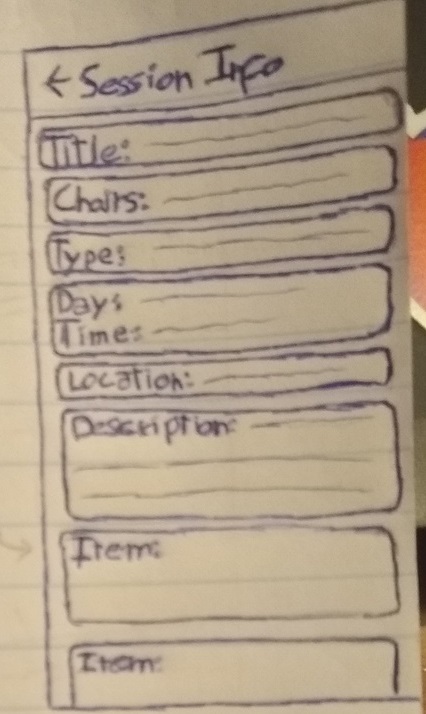 ← Session Info
Title:
Chairs:
Type:
Day:
Time:
Location:
Description:
Item:
Item: